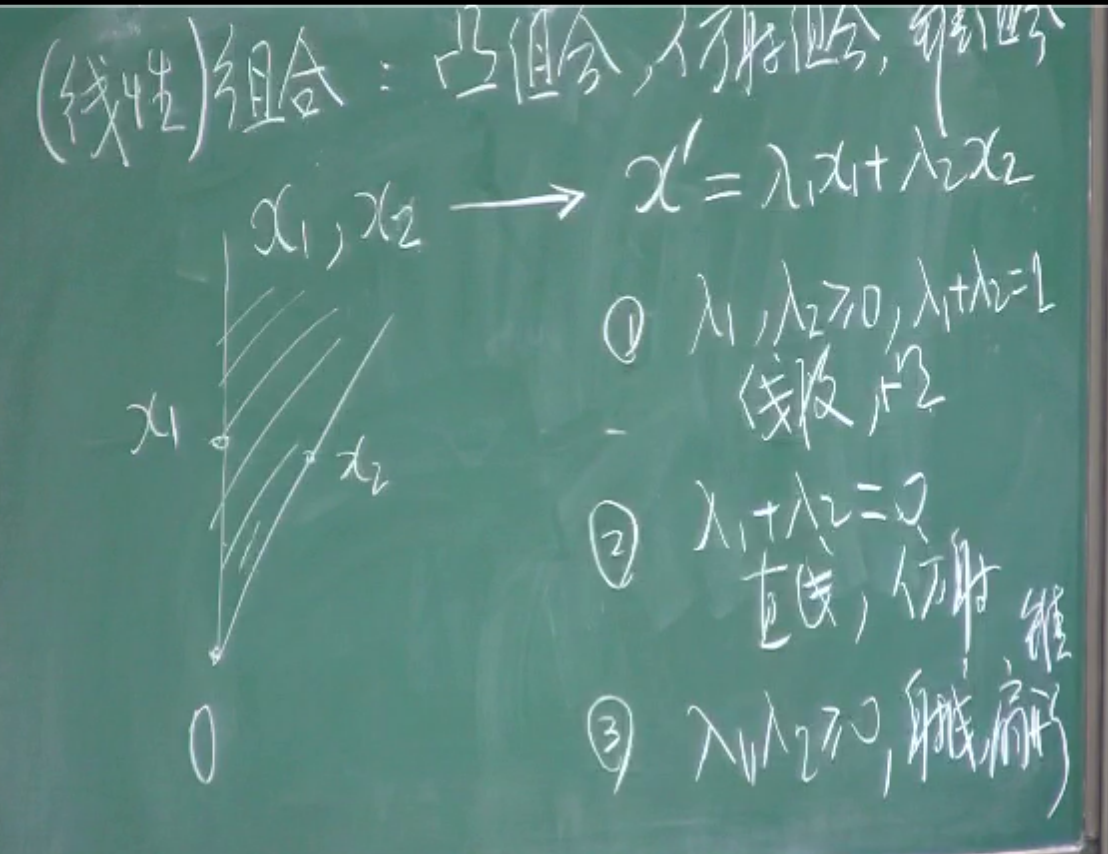 (线性)组合：凸组合,仿射组合,锥组合
x₁,x₂ → x' = λ₁x₁+λ₂x₂
① λ₁,λ₂≥0,λ₁+λ₂=1
线段,凸
x₁
x₂
② λ₁+λ₂=0
直线,仿射
锥
③ λ₁,λ₂≥0,射线,扇形
0